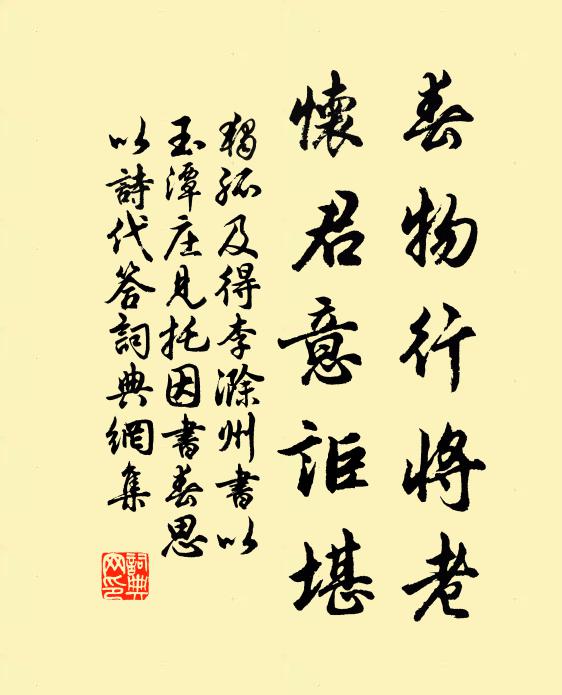 春物行將老
懷君意詎堪
獨孤及得李滁州書以
玉潭庄見托因書春思
以詩代答詞典網集
詞典
网印